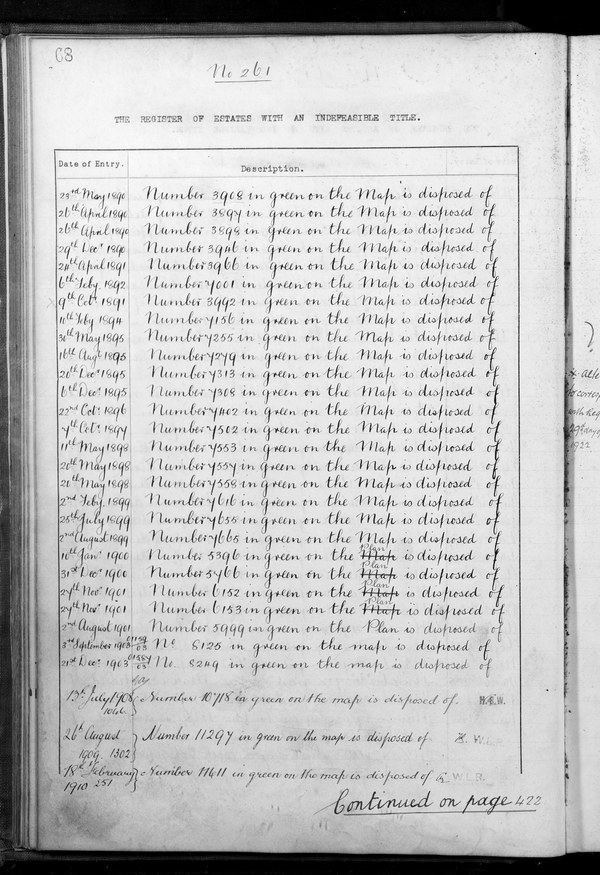 68
No 261
THE REGISTER OF ESTATES WITH AN INDEFEASIBLE TITLE.
Date of Entry. Description.
23rd May 1890 Number 3908 in green on the Map is disposed of
26th April 1890 Number 3897 in green on the Map is disposed of
26th April 1890 Number 3898 in green on the Map is disposed of
29th Decr 1890 Number 3946 in green on the Map is disposed of
24th April 1891 Number 3966 in green on the Map is disposed of
6th Feby. 1892 Number 7001 in green on the Map is disposed of
9th Octr 1891 Number 3992 in green on the Map is disposed of
Feby 1894 Number 7156 in green on the Map is disposed of
30th May 1895 Number 7255 in green on the Map is disposed of
16th Augt 1895 Number 7279 in green on the Map is disposed of
26th Decr 1895 Number 7313 in green on the Map is disposed of
6th Decr 1895 Number 7308 in green on the Map is disposed of
22nd Octr 1896 Number 7402 in green on the Map is disposed of
7th Octr. 1897 Number 7502 in green on the Map is disposed of
11th May 1898 Number 7553 in green on the Map is disposed of
20th May 1898 Number 7557 in green on the Map is disposed of
20th May 1898 Number 7558 in green on the Map is disposed of
2nd Feby. 1899 Number 7616 in green on the Map is disposed of
25th July 1899 Number 7655 in green on the Map is disposed of
2nd August 1899 Number 7665 in green on the Map is disposed of
10th Janr. 1900 Number 5396 in green on the Map Plan is disposed of
31st Decr 1900 Number 5766 in green on the Map Plan is disposed of
27th Novr 1901 Number 6152 in green on the Map Plan is disposed of
27th Novr 1901 Number 6153 in green on the Map Plan is disposed of
2nd August 1901 Number 5999 in green on the Plan is disposed of
3rd September 1903 No. 8125 in green on the map is disposed of
21st Decr 1903 No. 8249 in green on the map is disposed of
13th July 1908 Number 10718 in green on the map is disposed of.
26th August Number 11297 in green on the map is disposed of
1909. 1302
18th February Number 11411 in green on the map is disposed of
1910 251
Continued on page 422
?
1922